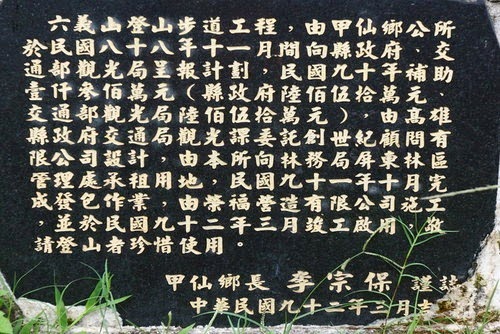 六義山登山步道工程，由甲仙鄉公所
於民國八十八年十一月，間向縣政府、交
通部觀光局呈報計劃，民國九十年補助
壹仟參佰萬元（縣政府陸佰伍拾萬元、
交通部觀光局陸佰伍拾萬元），高雄
縣政府觀光課委託創世紀顧問有
限公司設計，由本所向林務局屏東林區
管理處承租用地，民國九十一年十月完
成發包作業，由榮福營造有限公司施工，
並於民國九十二年三月竣工啟用，敬
請登山者珍惜使用。
甲仙鄉長 李宗保 謹誌
中華民國九十二年三月吉